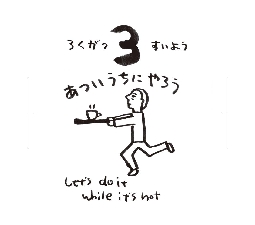 ろくがつ 3 すいよう
あついうちに やろう
Let's do it
while it's hot